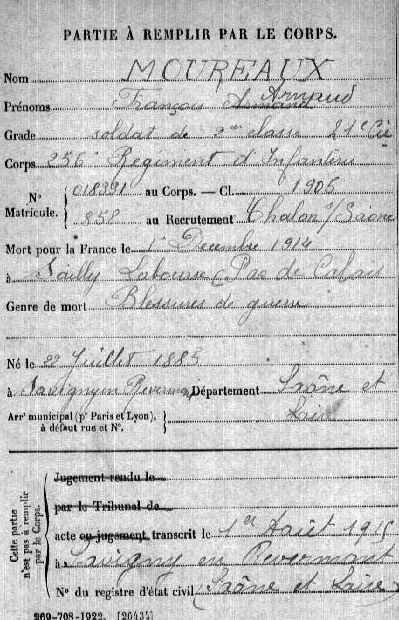 PARTIE À REMPLIR PAR LE CORPS.
Nom MOUREAUX
Prénoms François Armand Arnaud
Grade soldat de 2me classe 21e Cie
Corps 256e Régiment d'Infanterie
N° Matricule. { 018391 au Corps. — Cl. 1905
858 au Recrutement Chalon s/Saône
Mort pour la France le 1er Décembre 1914
à Sailly Labourse (Pas de Calais
Genre de mort Blessures de guerre
Né le 22 Juillet 1885
à Savigny en Revermont Département Saône et Loire
Arrt municipal (pr Paris et Lyon), à défaut rue et N°. }
Cette partie n'est pas à remplir par le Corps.
Jugement rendu le
par le Tribunal de
acte ou jugement transcrit le 1er Août 1915
à Savigny en Revermont
N° du registre d'état civil (Saône et Loire)
269-708-1922. [26434]